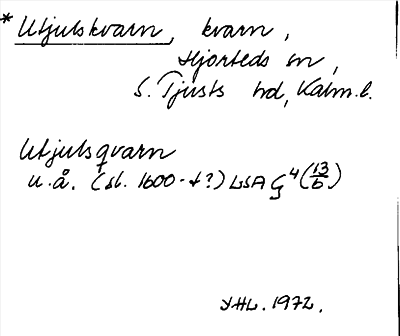 * Utjutskvarn, kvarn,
Hjorteds sn,
S. Tjusts hd, Kalm.l.
Utjutsqvarn
u.å. (sl. 1600-t?) LSA G⁴ (13/b)
YHL. 1972.